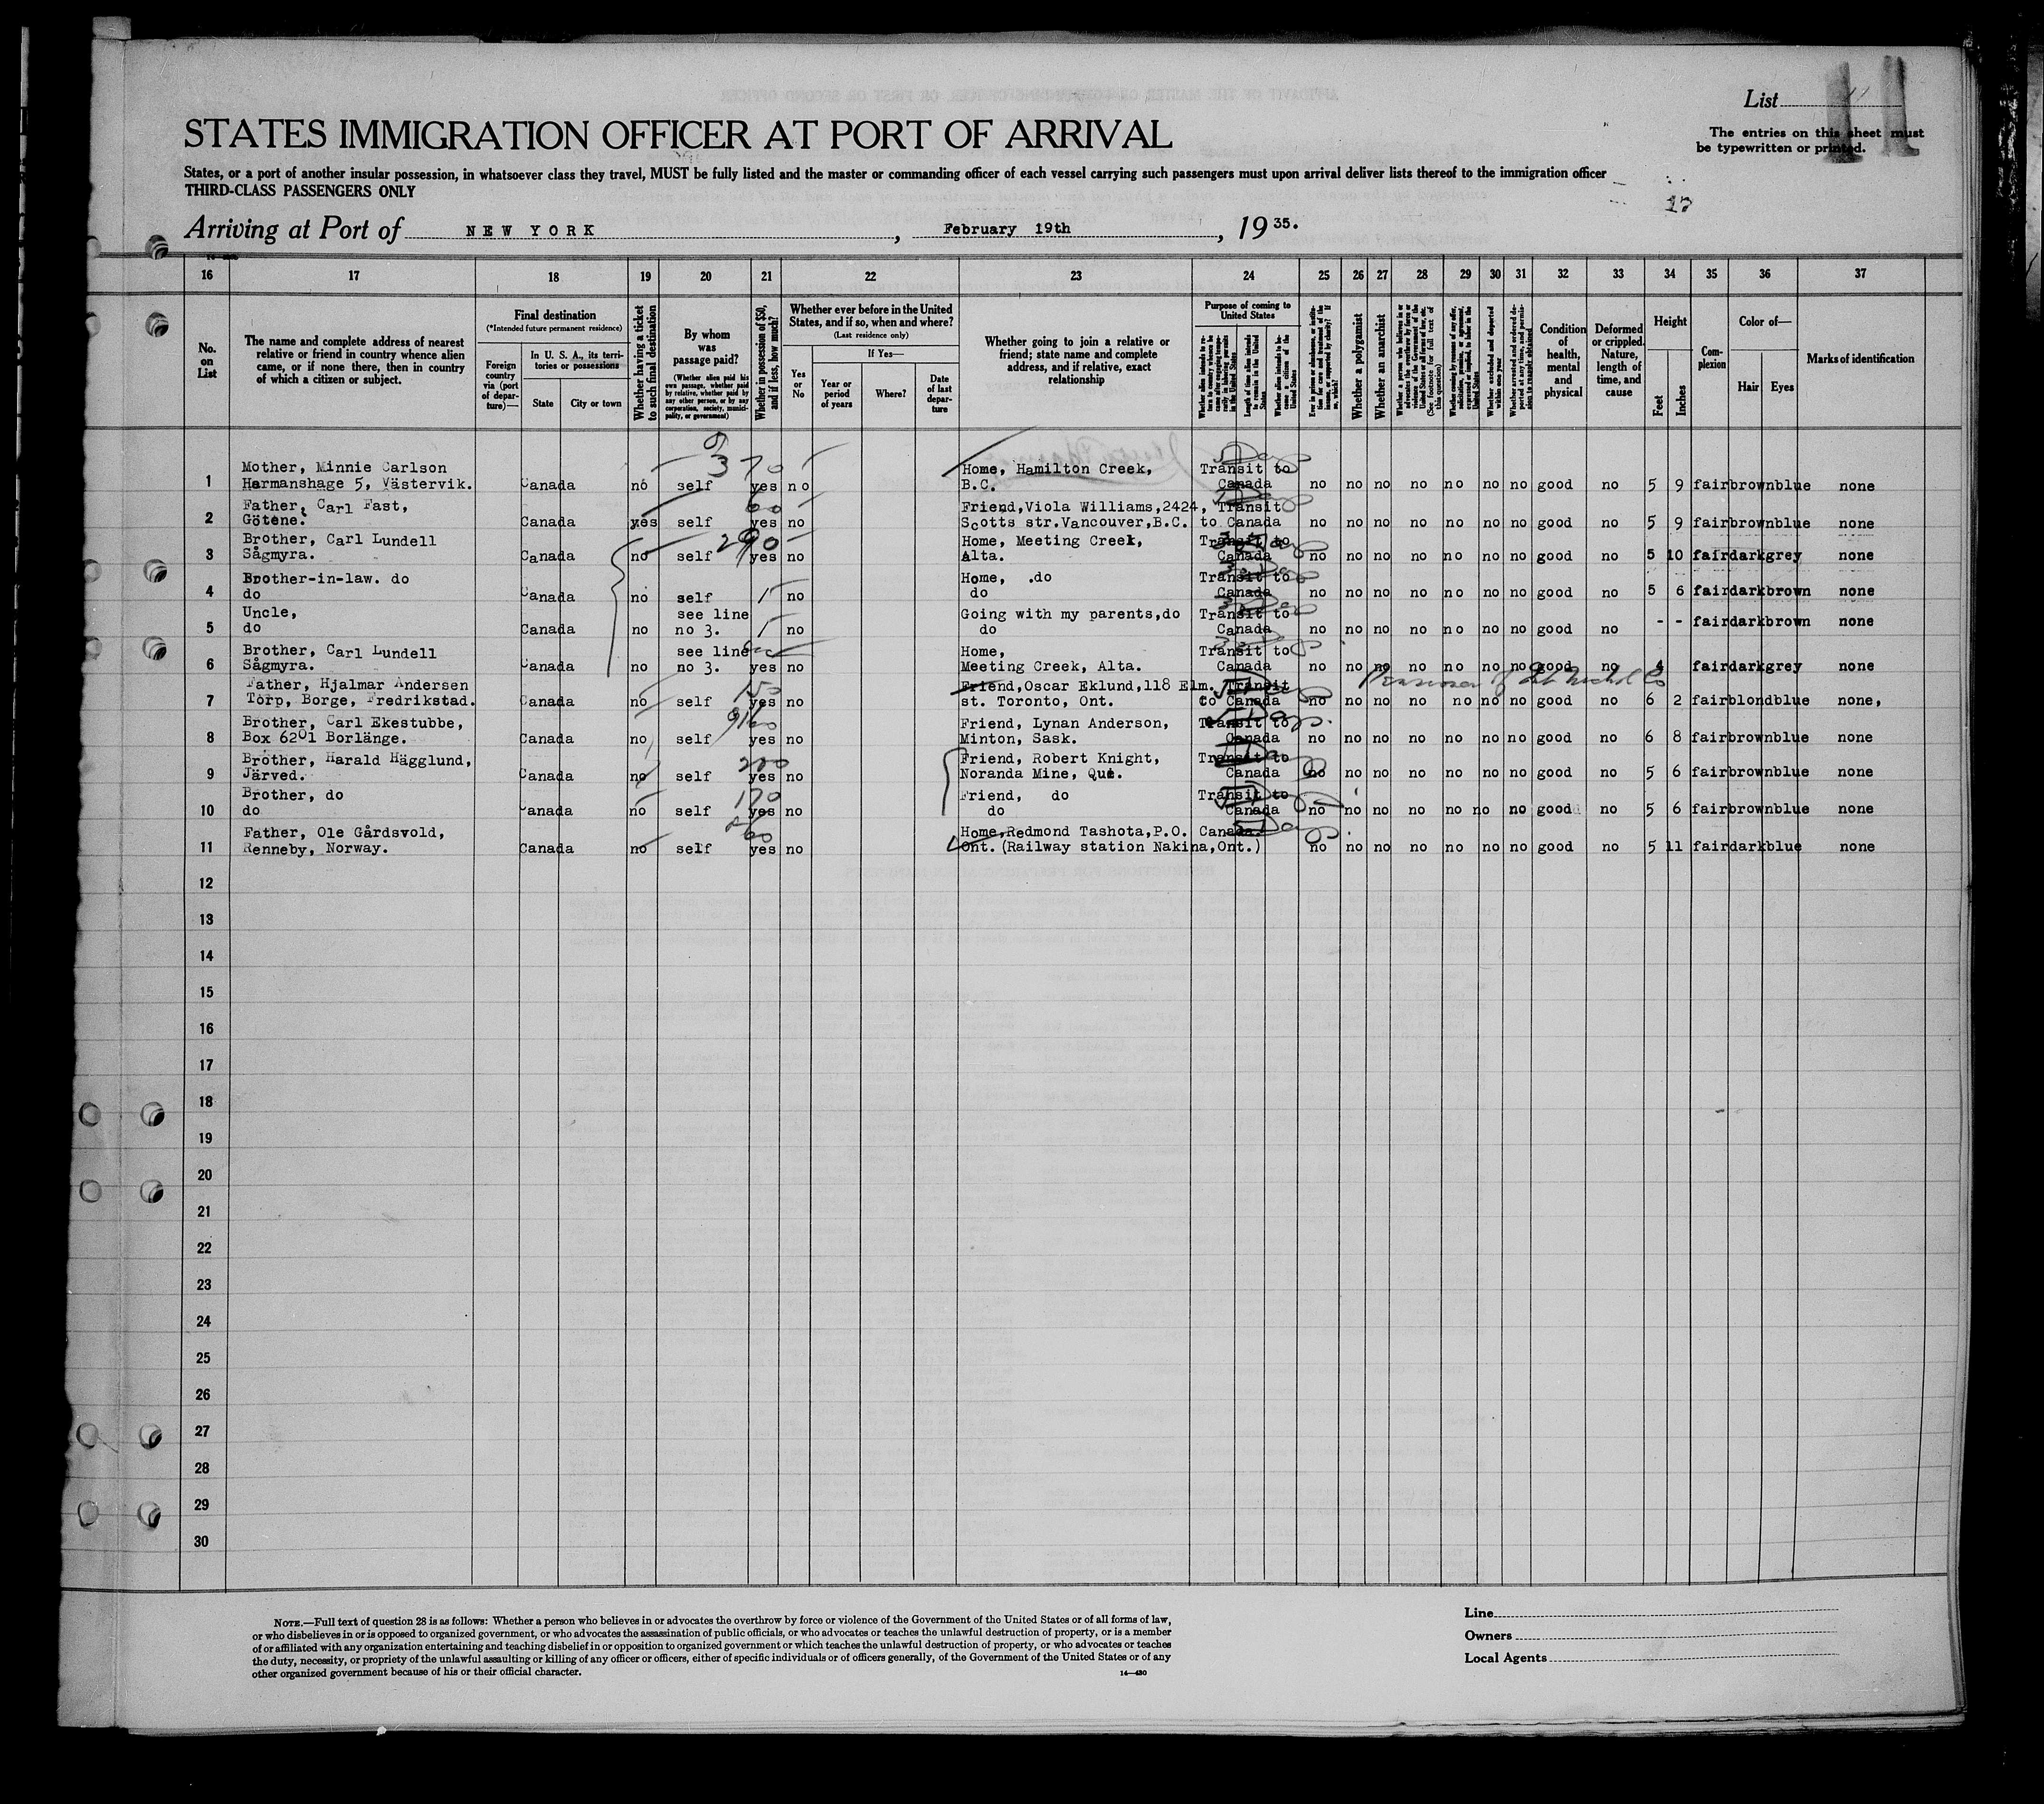 List 11
STATES IMMIGRATION OFFICER AT PORT OF ARRIVAL
The entries on this sheet must
be typewritten or printed.
States, or a port of another insular possession, in whatsoever class they travel, MUST be fully listed and the master or commanding officer of each vessel carrying such passengers must upon arrival deliver lists thereof to the immigration officer
THIRD-CLASS PASSENGERS ONLY
17
Arriving at Port of NEW YORK, February 19th, 1935.
16 17 18 19 20 21 22 23 24 25 26 27 28 29 30 31 32 33 34 35 36 37
No. on List
The name and complete address of nearest relative or friend in country whence alien came, or if none there, then in country of which a citizen or subject.
Final destination
(*Intended future permanent residence)
Foreign country via (port of departure)—
In U. S. A., its territories or possessions
State
City or town
Whether having a ticket to such final destination
By whom was passage paid?
(Whether alien paid his own passage, whether paid by relative, whether paid by any other person, or by any corporation, society, municipality, or government)
Whether in possession of $50, and if less, how much?
Whether ever before in the United States, and if so, when and where?
(Last residence only)
Yes or No
If Yes—
Year or period of years
Where?
Date of last departure
Whether going to join a relative or friend; state name and complete address, and if relative, exact relationship
Purpose of coming to United States
Whether alien intends to return to country whence he came after engaging temporarily in laboring pursuits in the United States
Length of time alien intends to remain in the United States
Whether alien intends to become a citizen of the United States
Ever in prison or almshouse, or institution for care and treatment of the insane, or supported by charity? If so, which?
Whether a polygamist
Whether an anarchist
Whether a person who believes in or advocates the overthrow by force or violence of the Government of the United States or all forms of law, etc. (See footnote for full text of this question)
Whether coming by reason of any offer, solicitation, promise, or agreement, expressed or implied, to labor in the United States
Whether excluded and deported within one year
Whether arrested and ordered deported at any time, and permission to reapply obtained
Condition of health, mental and physical
Deformed or crippled. Nature, length of time, and cause
Height
Feet
Inches
Complexion
Color of—
Hair
Eyes
Marks of identification
Mother, Minnie Carlson 370 Home, Hamilton Creek, Transit to
1 Harmanshage 5, Västervik. Canada no self yes no B.C. Canada no no no no no no no good no 5 9 fair brown blue none
Father, Carl Fast, 60 Friend, Viola Williams, 2424, Transit
2 Götene. Canada yes self yes no Scotts str. Vancouver, B.C. to Canada no no no no no no no good no 5 9 fair brown blue none
Brother, Carl Lundell 290 Home, Meeting Creek, Transit to
3 Sågmyra. Canada no self yes no Alta. Canada no no no no no no no good no 5 10 fair dark grey none
Brother-in-law. do Home, .do Transit to
4 do Canada no self no do Canada no no no no no no no good no 5 6 fair dark brown none
Uncle, see line Going with my parents, do Transit to
5 do Canada no no 3. no do Canada no no no no no no no good no - - fair dark brown none
Brother, Carl Lundell see line Home, Transit to
6 Sågmyra. Canada no no 3. yes no Meeting Creek, Alta. Canada no no no no no no no good no 4 fair dark grey none
Father, Hjalmar Andersen 150 Friend, Oscar Eklund, 118 Elm. Transit
7 Torp, Borge, Fredrikstad. Canada no self yes no st. Toronto, Ont. to Canada no no no no no no no good no 6 2 fair blond blue none,
Brother, Carl Ekestubbe, Friend, Lynan Anderson, Transit to
8 Box 6201 Borlänge. Canada no self yes no Minton, Sask. Canada no no no no no no no good no 6 8 fair brown blue none
Brother, Harald Hägglund, 200 Friend, Robert Knight, Transit to
9 Järved. Canada no self yes no Noranda Mine, Que. Canada no no no no no no no good no 5 6 fair brown blue none
Brother, do 170 Friend, do Transit to
10 do Canada no self yes no do Canada no no no no no no no good no 5 6 fair brown blue none
Father, Ole Gårdsvold, Home, Redmond Tashota, P.O. Canada.
11 Renneby, Norway. Canada no self yes no Ont. (Railway station Nakina, Ont.) no no no no no no no good no 5 11 fair dark blue none
12
13
14
15
16
17
18
19
20
21
22
23
24
25
26
27
28
29
30
NOTE.—Full text of question 28 is as follows: Whether a person who believes in or advocates the overthrow by force or violence of the Government of the United States or of all forms of law,
or who disbelieves in or is opposed to organized government, or who advocates the assassination of public officials, or who advocates or teaches the unlawful destruction of property, or is a member
of or affiliated with any organization entertaining and teaching disbelief in or opposition to organized government or which teaches the unlawful destruction of property, or who advocates or teaches
the duty, necessity, or propriety of the unlawful assaulting or killing of any officer or officers, either of specific individuals or of officers generally, of the Government of the United States or of any
other organized government because of his or their official character.
14—430
Line
Owners
Local Agents